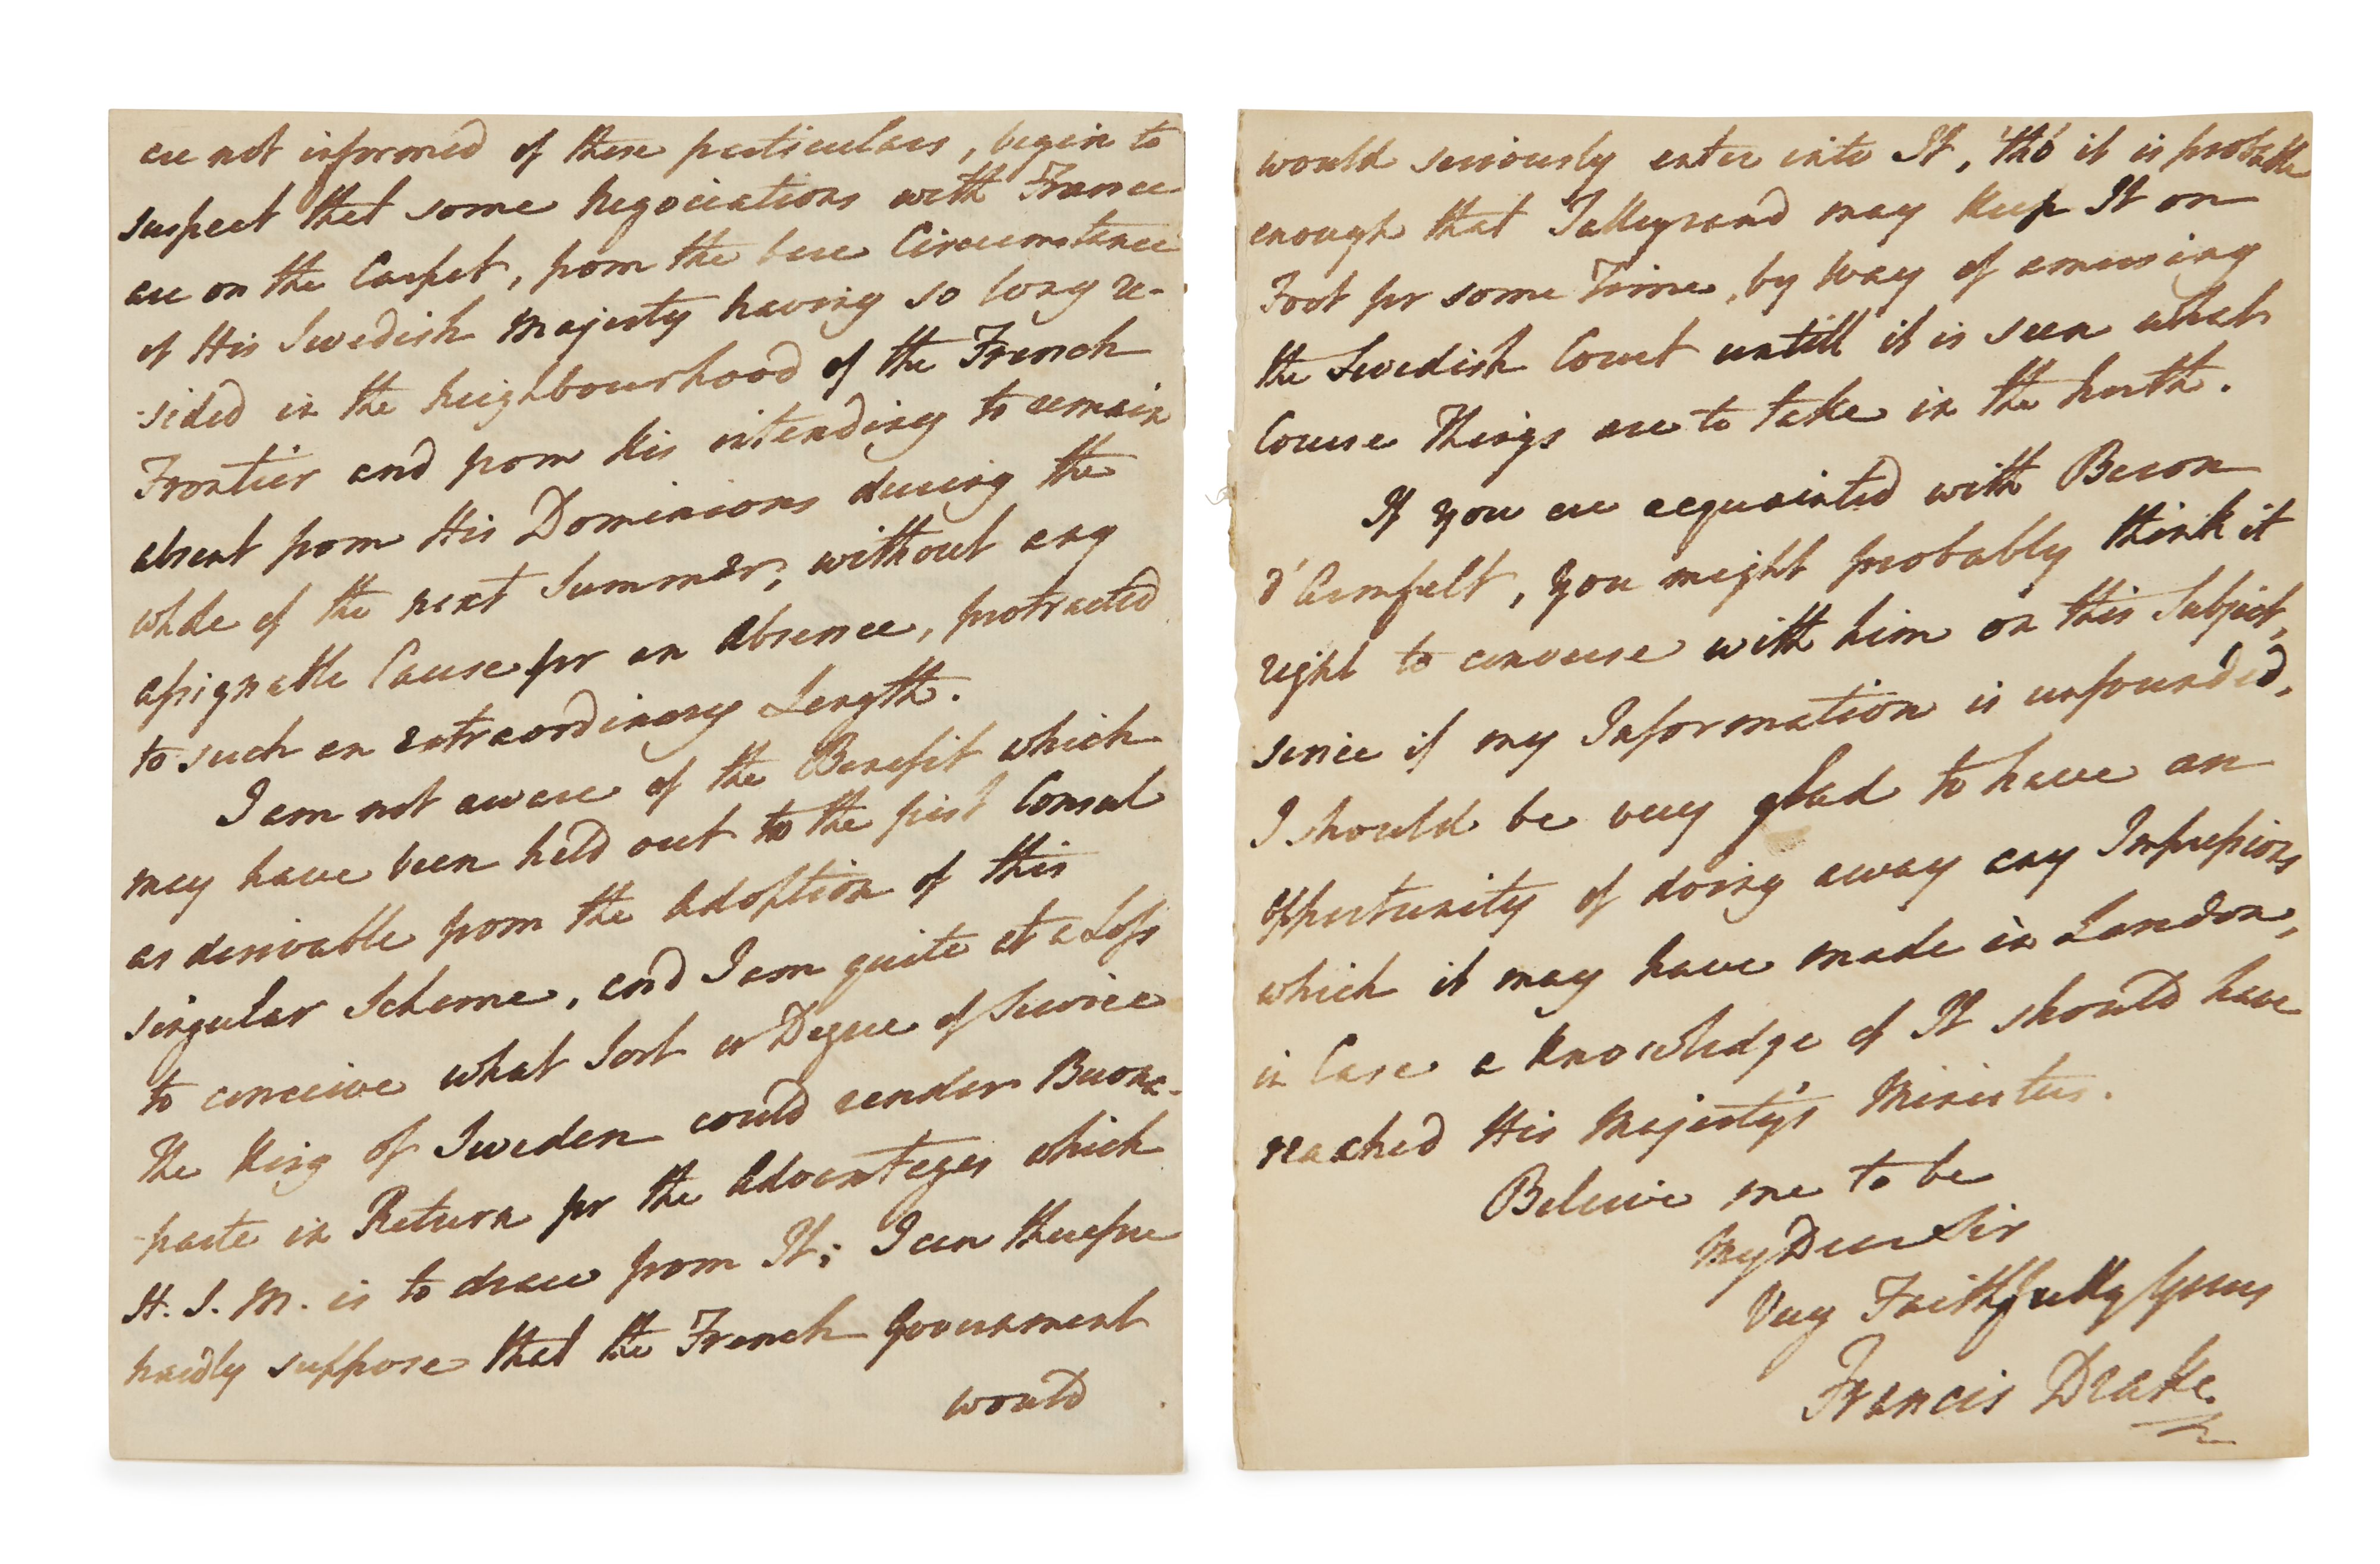 are not informed of these particulars, begin to
suspect that some Negociations with France
are on the Carpet, from the bare Circumstance
of His Swedish Majesty having so long re-
-sided in the Neighbourhood of the French
Frontier and from His intending to remain
absent from His Dominions during the
whole of the next Summer, without any
assignable Cause for an Absence, protracted
to such an extraordinary Length.
I am not aware of the Benefit which
may have been held out to the first Consul
as derivable from the Adoption of this
singular Scheme, and I am quite at a Loss
to conceive what Sort or Degree of Service
the King of Sweden could render Buona-
-parte in Return for the Advantages which
H. S. M. is to draw from It; I can therefore
hardly suppose that the French Government
would
would seriously enter into It, tho' it is probable
enough that Talleyrand may keep It on
Foot for some Time, by Way of amusing
the Swedish Court untill it is seen what
Course Things are to take in the North.
If you are acquainted with Baron
d'Armfelt, you might probably think it
right to converse with him on this Subject,
since if my Information is unfounded,
I should be very glad to have an
opportunity of doing away any Impressions
which it may have made in London,
in Case a Knowledge of It should have
reached His Majesty's Ministers.
Believe me to be
My Dear Sir
Very Faithfully Yours
Francis Drake